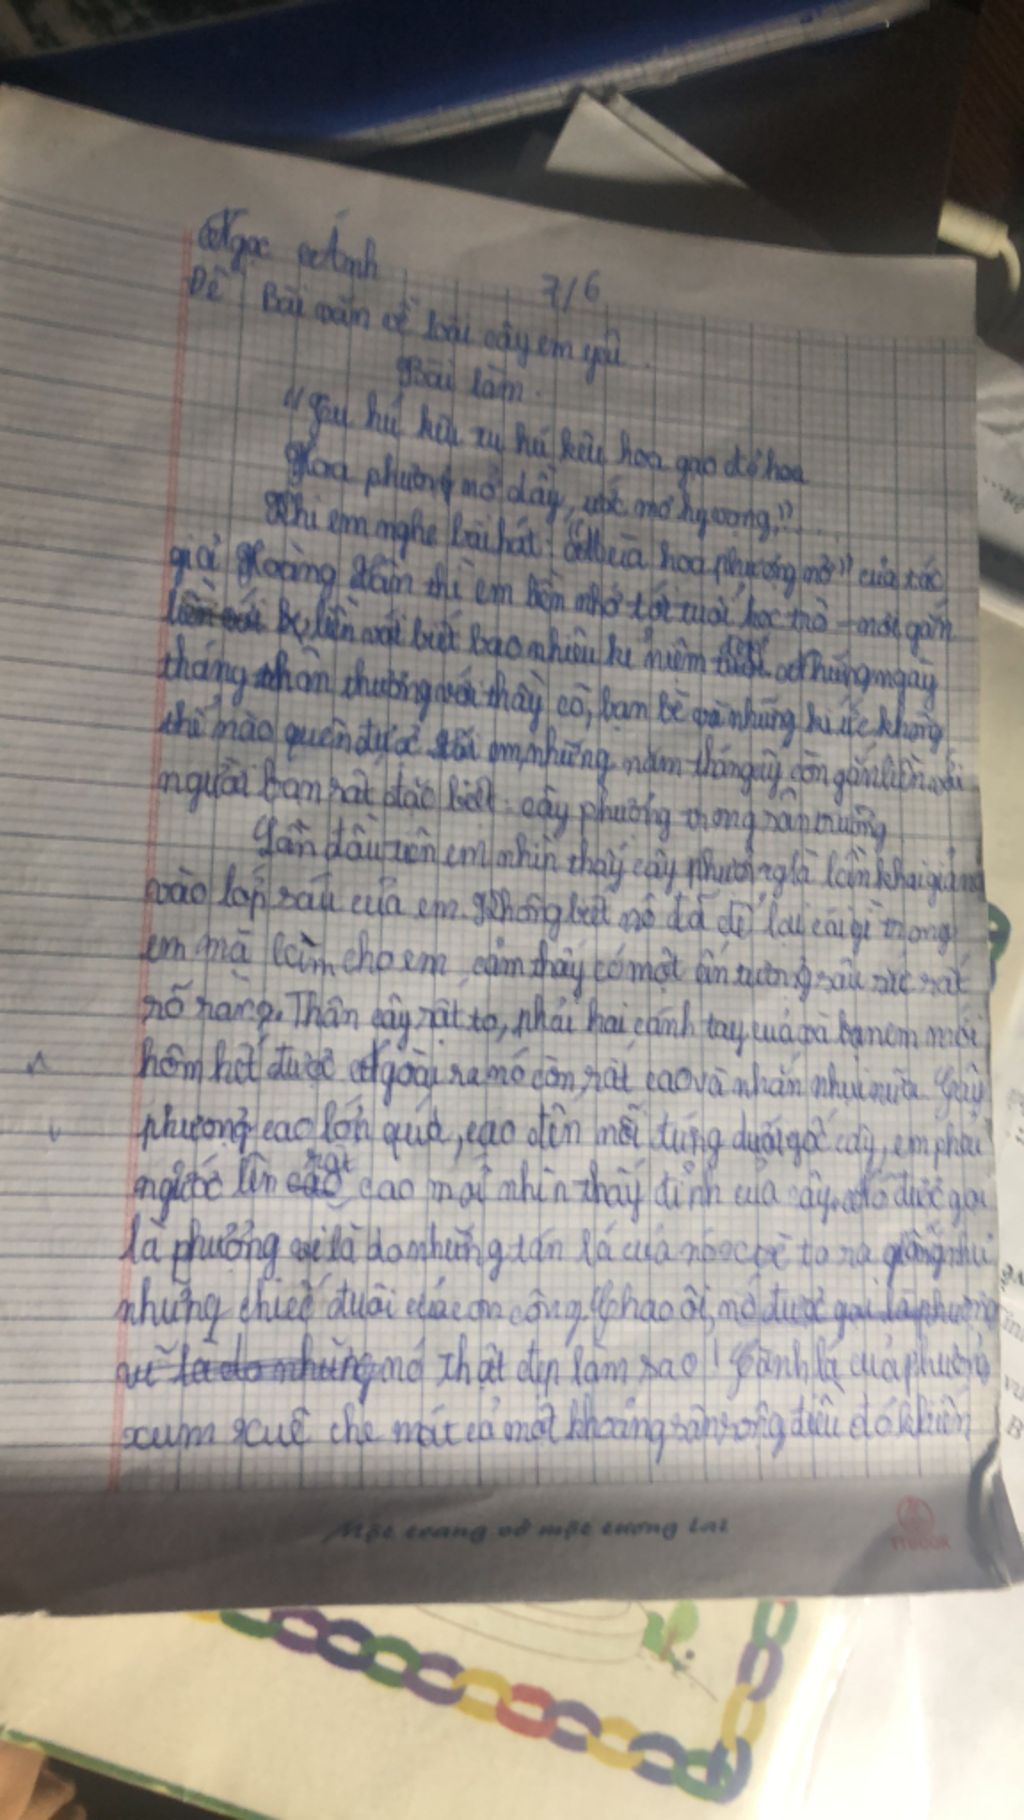 Ngọc Ánh 7/6
Đề Bài văn về loài cây em yêu.
Bài làm.
"Tu hú kêu tu hú kêu hoa gạo đỏ hoa
Hoa phượng nở đầy, ước mơ hy vọng."
Khi em nghe bài hát: "Mùa hoa phượng nở" của tác
giả Hoàng Vân thì em bồn nhớ tới tuổi học trò - nơi gắn
liền với biết bao nhiêu kỉ niệm đẹp Những ngày
tháng thân thương với thầy cô, bạn bè và những kí ức không
thể nào quên được với em, những năm tháng ấy còn gắn liền với
người bạn rất đặc biệt: cây phượng trong sân trường
Lần đầu tiên em nhìn thấy cây phượng là lần khai giảng
vào lớp sáu của em. Không biết nó đã để lại cái gì trong
em mà làm cho em cảm thấy có một ấn tượng sâu sắc rất
rõ ràng. Thân cây rất to, phải hai cánh tay của bạn em mới
hôm hết được Ngoài ra nó còn rất cao và nhăn nhụi nữa. Cây
phượng cao lớn quá, cao đến nỗi đứng dưới gốc cây, em phải
ngước lên rất cao mới nhìn thấy đỉnh của cây. Nó được gọi
là phượng vĩ là do những tán lá của nó xòe to ra giống như
những chiếc đuôi của con công. Chao ôi, nó được gọi là phượng
vĩ là do những nó thật đẹp làm sao! Cành lá của phượng
xum xuê che mát cả một khoảng sân rộng điều đó khiến
Một trang vở một tương lai
TTBOOK